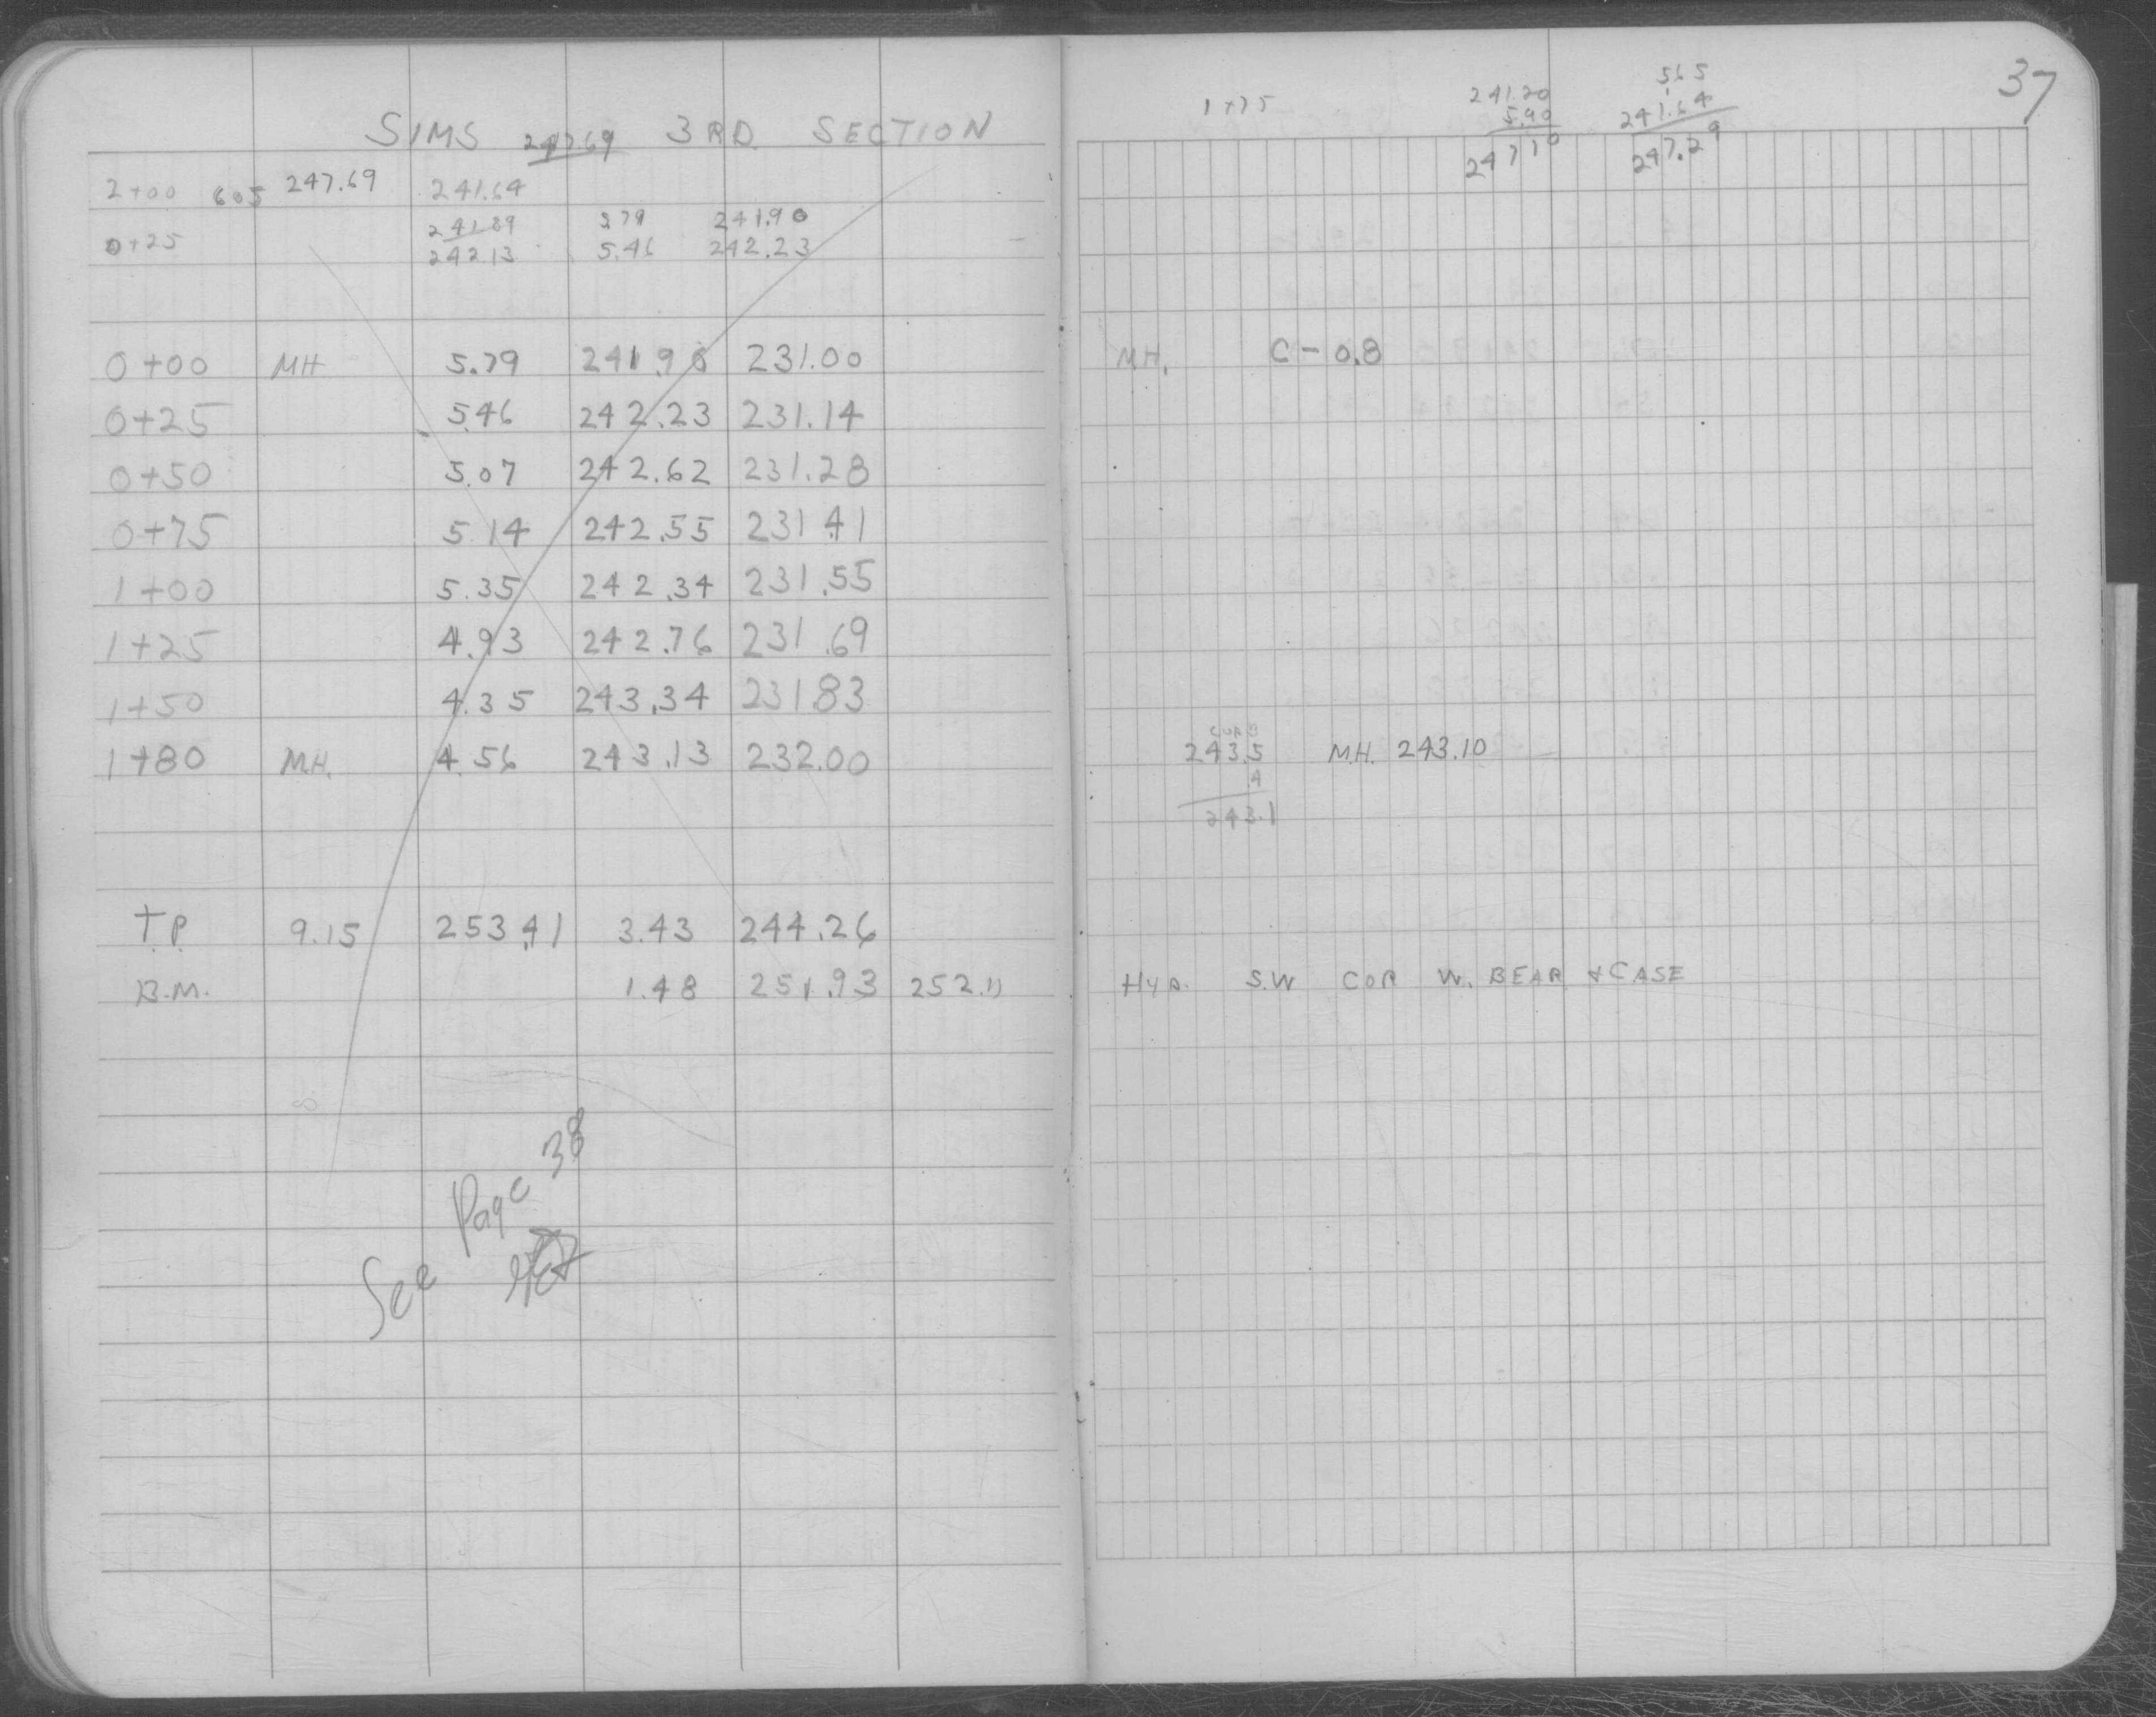 SIMS 247.69 3RD SECTION
2+00 605 247.69 241.64
241.89 5.79 241.90
0+25 242.13 5.46 242.23
0+00 MH 5.79 241.90 231.00
0+25 5.46 242.23 231.14
0+50 5.07 242.62 231.28
0+75 5.14 242.55 231.41
1+00 5.35 242.34 231.55
1+25 4.93 242.76 231.69
1+50 4.35 243.34 231.83
1+80 M.H. 4.56 243.13 232.00
T.P. 9.15 253.41 3.43 244.26
B.M. 1.48 251.93 252.11
See Page 38
37
1+75
241.20
5.90
247 10
565
241.64
247.29
M.H. C - 0.8
CURB
243.5 M.H. 243.10
.4
243.1
Hyd. S.W COR W. BEAR & CASE